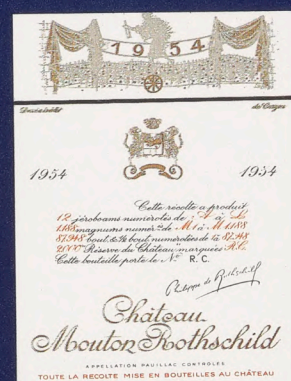 1954
Dessin inédit de Carzou
1954 1954
Cette récolte a produit:
12 jéroboams numérotés de A à L
1188 magnums numér.ᵗˢ de M 1 à M 1188
87.948 bout. & ½ bout. numérotées de 1 à 87.948
2000 "Réserve du Château" marquées R.C.
Cette bouteille porte le Nº R. C.
Philippe de Rothschild
Château
Mouton Rothschild
APPELLATION PAUILLAC CONTROLÉE
TOUTE LA RÉCOLTE MISE EN BOUTEILLES AU CHÂTEAU